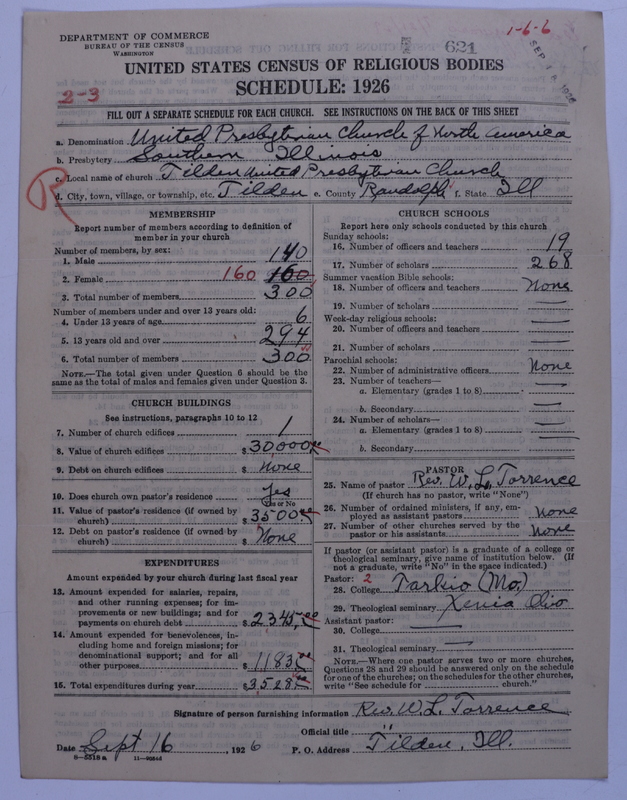 1-6-6
DEPARTMENT OF COMMERCE
BUREAU OF THE CENSUS
WASHINGTON
621
SEP 18 1926
UNITED STATES CENSUS OF RELIGIOUS BODIES
SCHEDULE: 1926
2-3
FILL OUT A SEPARATE SCHEDULE FOR EACH CHURCH. SEE INSTRUCTIONS ON THE BACK OF THIS SHEET
a. Denomination United Presbyterian Church of North America
b. Presbytery Southern Illinois
c. Local name of church Tilden United Presbyterian Church
R
d. City, town, village, or township, etc. Tilden e. County Randolph f. State Ill
MEMBERSHIP
Report number of members according to definition of
member in your church
Number of members, by sex:
1. Male 140
2. Female 160 160
3. Total number of members 300
Number of members under and over 13 years old:
4. Under 13 years of age 6
5. 13 years old and over 294
6. Total number of members 300
NOTE.—The total given under Question 6 should be the
same as the total of males and females given under Question 3.
CHURCH BUILDINGS
See instructions, paragraphs 10 to 12
7. Number of church edifices 1
8. Value of church edifices $ 30,000
9. Debt on church edifices $ None
10. Does church own pastor's residence Yes
Yes or No
11. Value of pastor's residence (if owned by
church) $ 3500
12. Debt on pastor's residence (if owned by
church) $ None
EXPENDITURES
Amount expended by your church during last fiscal year
13. Amount expended for salaries, repairs,
and other running expenses; for im-
provements or new buildings; and for
payments on church debt $ 2345.00
14. Amount expended for benevolences, in-
cluding home and foreign missions; for
denominational support; and for all
other purposes $ 1183
15. Total expenditures during year $ 3528
CHURCH SCHOOLS
Report here only schools conducted by this church
Sunday schools:
16. Number of officers and teachers 19
17. Number of scholars 268
Summer vacation Bible schools:
18. Number of officers and teachers None
19. Number of scholars —
Week-day religious schools:
20. Number of officers and teachers —
21. Number of scholars —
Parochial schools:
22. Number of administrative officers None
23. Number of teachers—
a. Elementary (grades 1 to 8) —
b. Secondary —
24. Number of scholars—
a. Elementary (grades 1 to 8) —
b. Secondary
PASTOR
25. Name of pastor Rev. W. L. Torrence
(If church has no pastor, write "None")
26. Number of ordained ministers, if any, em-
ployed as assistant pastors None
27. Number of other churches served by the
pastor or his assistants None
If pastor (or assistant pastor) is a graduate of a college or
theological seminary, give name of institution below. (If
not a graduate, write "No" in the space indicated.)
Pastor: 2
28. College Tarkio (Mo.)
29. Theological seminary Xenia Ohio
Assistant pastor:
30. College —
31. Theological seminary —
NOTE.—Where one pastor serves two or more churches,
Questions 28 and 29 should be answered only on the schedule
for one of the churches; on the schedules for the other churches,
write "See schedule for church."
Signature of person furnishing information Rev. W. L. Torrence
Official title "
Date Sept 16, 1926 P. O. Address Tilden, Ill.
8-5518 a 11-9084d